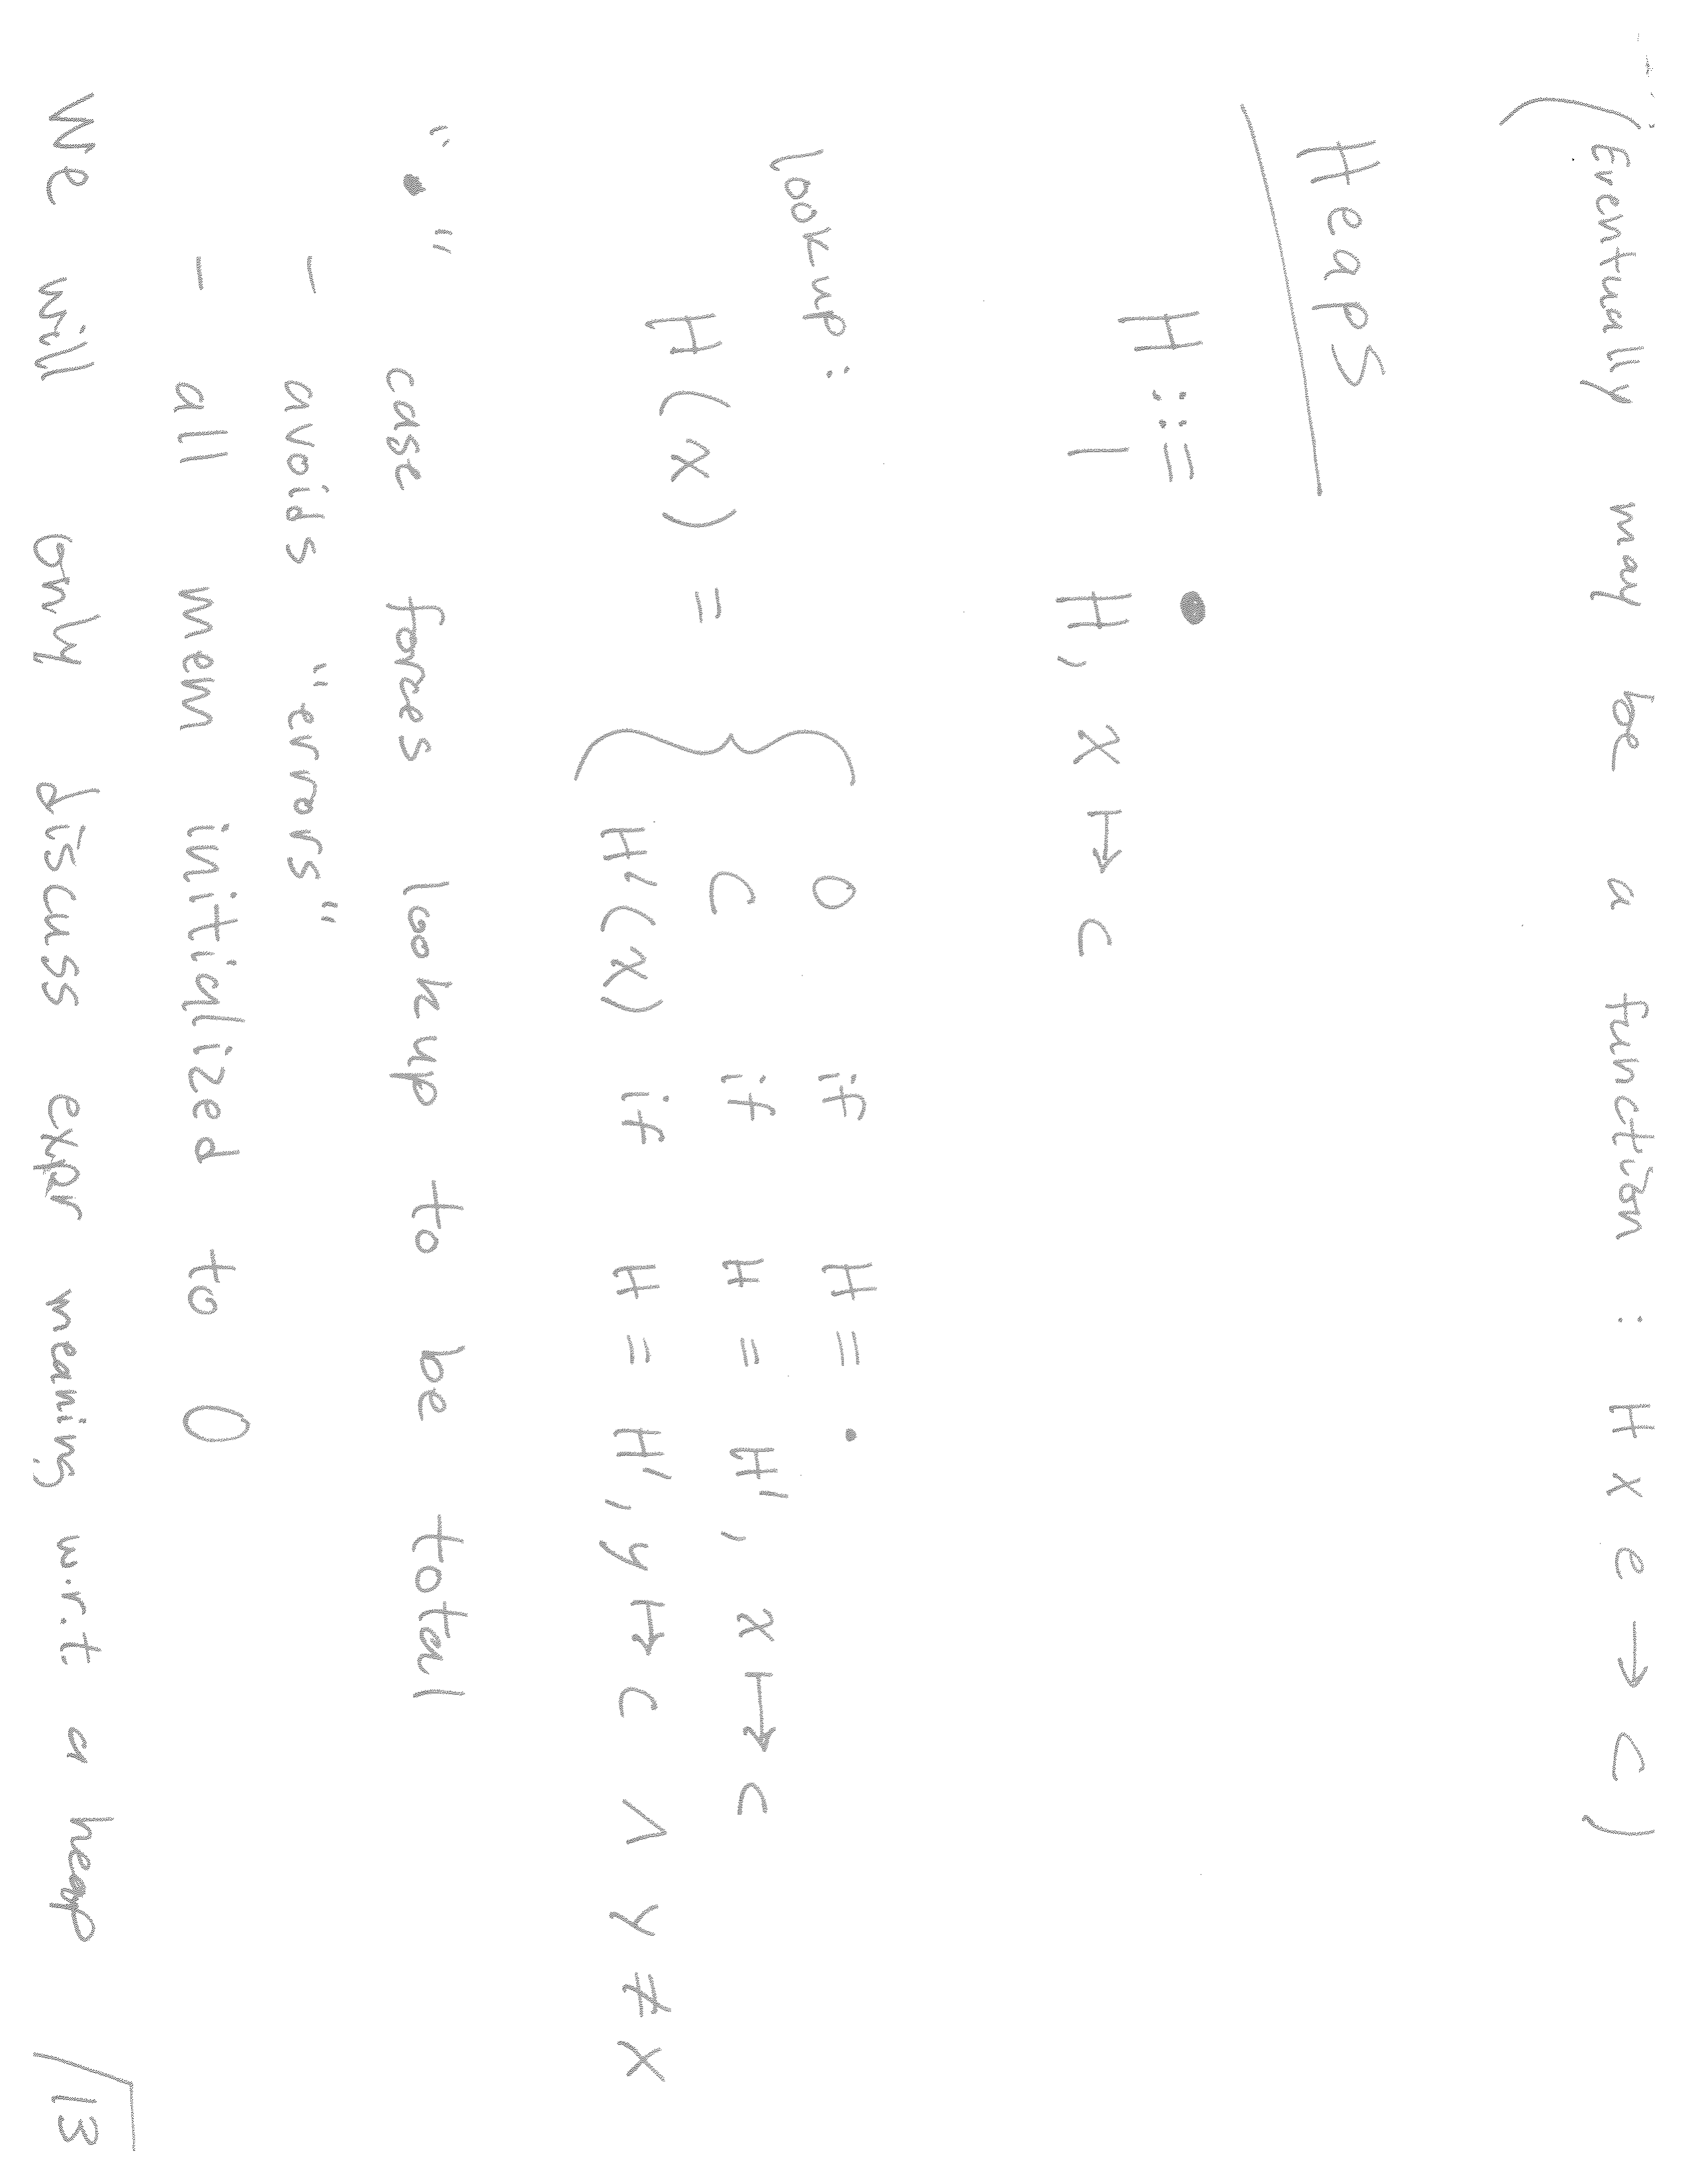 (Eventually may be a function : H x e → c)
Heaps
H ::= •
| H, x ↦ c
lookup :
H(x) = { 0 if H = •
c if H = H', x ↦ c
H'(x) if H = H', y ↦ c ∧ y ≠ x
"•" case forces lookup to be total
- avoids "errors"
- all mem initialized to 0
We will only discuss expr meaning w.r.t a heap
13